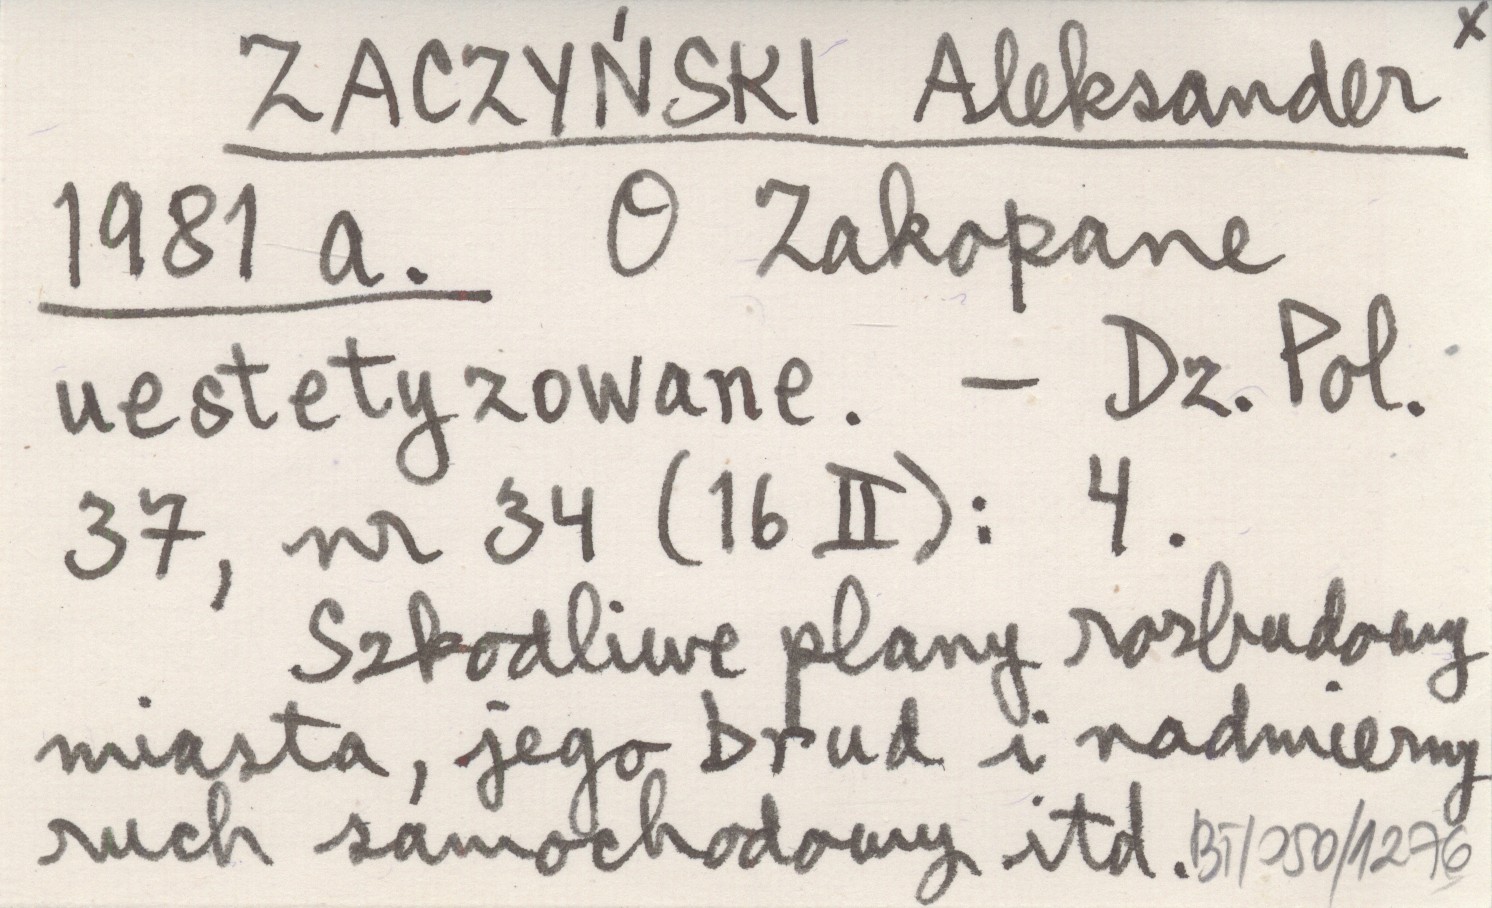 ZACZYŃSKI Aleksander x
1981 a. O Zakopane
uestetyzowane. — Dz. Pol.
37, nr 34 (16 II): 4.
Szkodliwe plany rozbudowy
miasta, jego brud i nadmierny
ruch samochodowy itd.